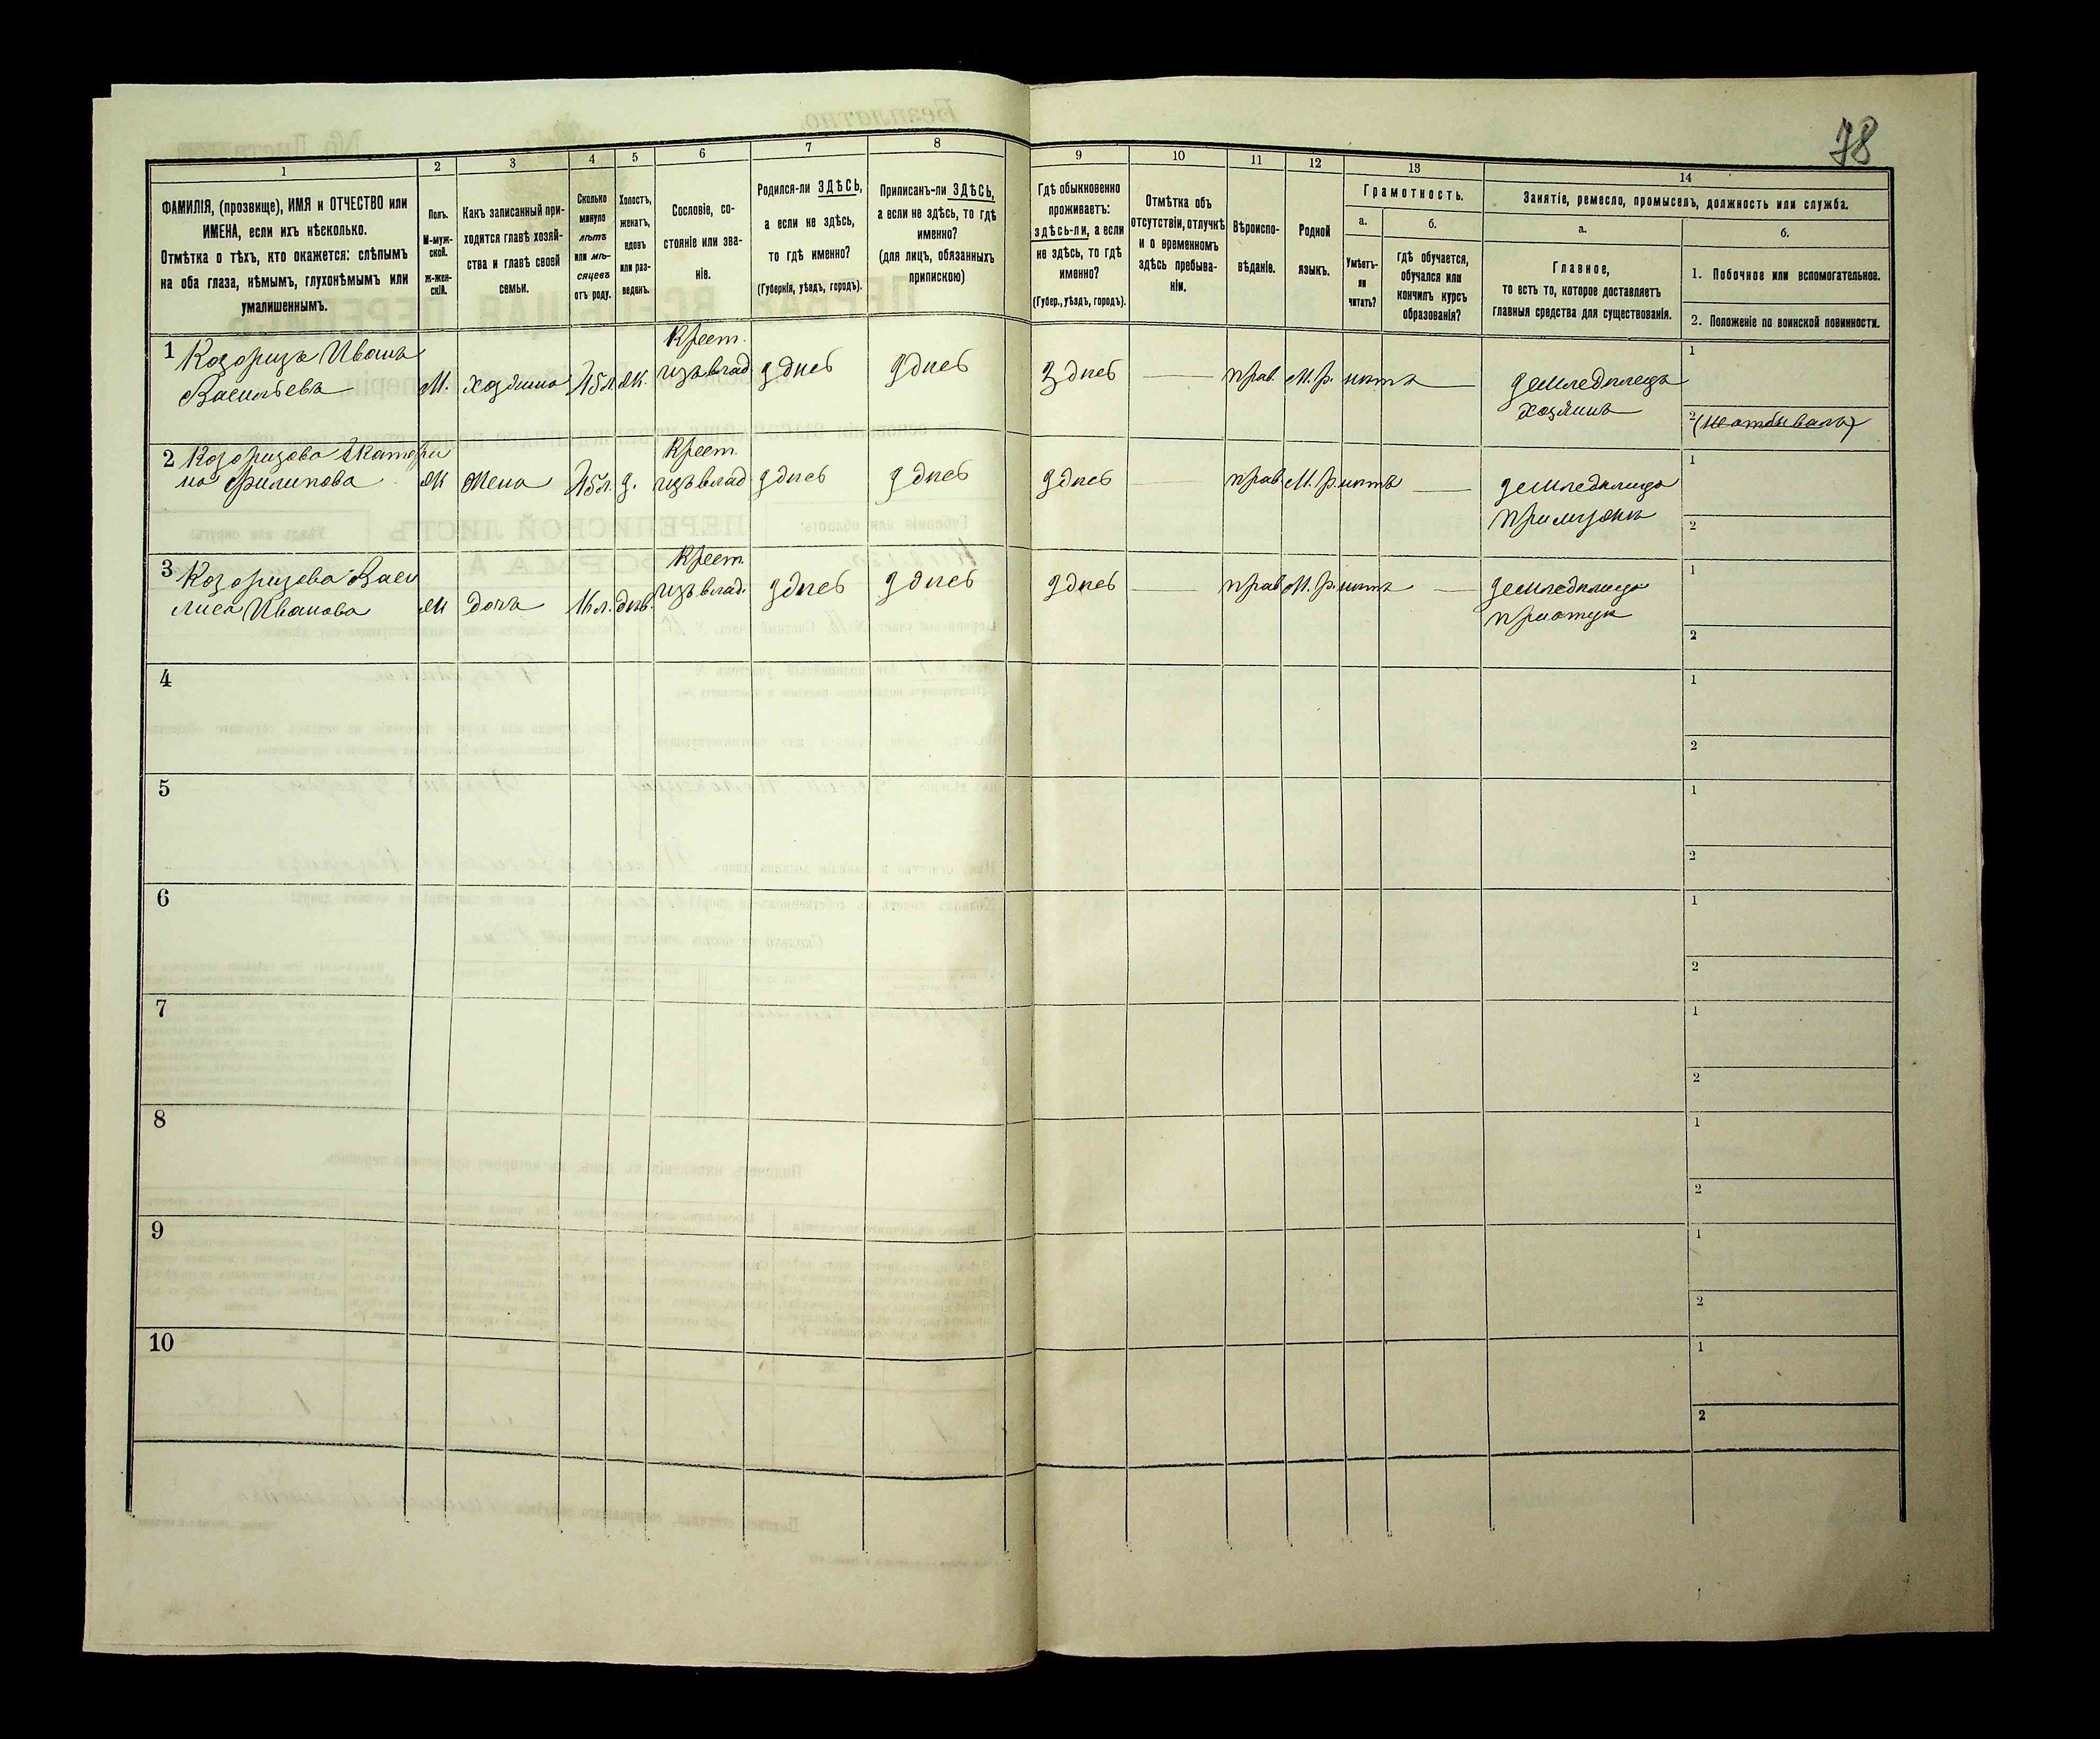 78
1
2
3
4
5
6
7
8
9
10
11
12
13
14
ФАМИЛІЯ, (прозвище), ИМЯ и ОТЧЕСТВО или
ИМЕНА, если ихъ нѣсколько.
Отмѣтка о тѣхъ, кто окажется: слѣпымъ
на оба глаза, нѣмымъ, глухонѣмымъ или
умалишеннымъ.
Полъ.
М-муж-
ской.
Ж-жен-
скій.
Какъ записанный при-
ходится главѣ хозяй-
ства и главѣ своей
семьи.
Сколько
минуло
лѣтъ
или мѣ-
сяцевъ
отъ роду.
Холостъ,
женатъ,
вдовъ
или раз-
веденъ.
Сословіе, со-
стояніе или зва-
ніе.
Родился-ли ЗДѢСЬ,
а если не здѣсь,
то гдѣ именно?
(Губернія, уѣздъ, городъ).
Приписанъ-ли ЗДѢСЬ,
а если не здѣсь, то гдѣ
именно?
(для лицъ, обязанныхъ
припискою)
Гдѣ обыкновенно
проживаетъ:
здѣсь-ли, а если
не здѣсь, то гдѣ
именно?
(Губер., уѣздъ, городъ).
Отмѣтка объ
отсутствіи, отлучкѣ
и о временномъ
здѣсь пребыва-
ніи.
Вѣроиспо-
вѣданіе.
Родной
языкъ.
Грамотность.
а.
Умѣетъ-
ли
читать?
б.
гдѣ обучается,
обучался или
кончилъ курсъ
образованія?
Занятіе, ремесло, промыселъ, должность или служба.
а.
Главное,
то есть то, которое доставляетъ
главныя средства для существованія.
б.
1. Побочное или вспомогательное.
2. Положеніе по воинской повинности.
1 Козоризъ Иванъ
Васильевъ
М.
хозяинъ
45 л.
ж.
Крест.
изъ влад.
здѣсь
здѣсь
здѣсь
прав.
М. р.
нѣтъ
земледѣлецъ
хозяинъ
1
2
2 Козоризова Екатери
на Филипова
Ж
жена
45 л.
з.
Крест.
изъ влад.
здѣсь
здѣсь
здѣсь
прав.
М. р.
нѣтъ
1
2
3 Козоризова Васи
лиса Иванова
Ж
дочь
16 л.
дѣв.
Крест.
изъ влад.
здѣсь
здѣсь
здѣсь
прав.
М. р.
нѣтъ
1
2
4
1
2
5
1
2
6
1
2
7
1
2
8
1
2
9
1
2
10
1
2